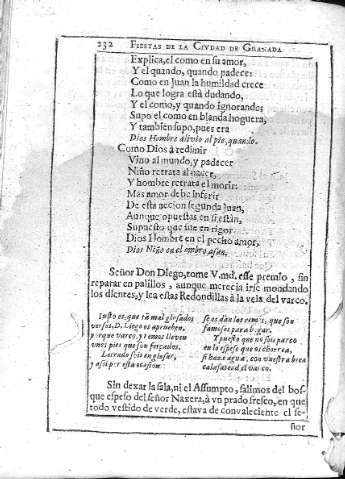 232 FIESTAS DE LA CIVDAD DE GRANADA
Explica, el como en su amor,
Y el quando, quando padece:
Como en Juan la humildad crece
Lo que logra está dudando,
Y el como, y quando ignorando;
Supo el como en blanda hoguera,
Y tambien supo, pues era
Dios Hombre alivio al pie, quando.
Como Dios à redimir
Vino al mundo, y padecer
Niño retrata al nacer,
Y hombre retrata el morir:
Mas amor debe inferir
De esta accion segunda Juan,
Aunque opuestas en si están,
Supuesto que fue en rigor
Dios Hombre en el pecho amor,
Dios Niño en el ombro afan.
Señor Don Diego, tome V.md. esse premio, sin
reparar en palillos, aunque merecia irse mondando
los dientes, y lea estas Redondillas à la vela del varco.
Iusto es, que tã mal glosados
versos, D. Diego os aprueben,
porque varco, y remos lleven
unos pies que son forçados.
Letrado sois en glosar,
y assi por esta ocasion
se os dàn los remos, que son
famosos para bogar.
Y puesto que no sois parco
en lo espeso que os chorrea,
si haze agua, con vuestra brea
calafatead el varco.
Sin dexar la sala, ni el Assumpto, salimos del bos-
que espeso del señor Naxera, à vn prado fresco, en que
todo vestido de verde, estava de convaleciente el se-
ñor